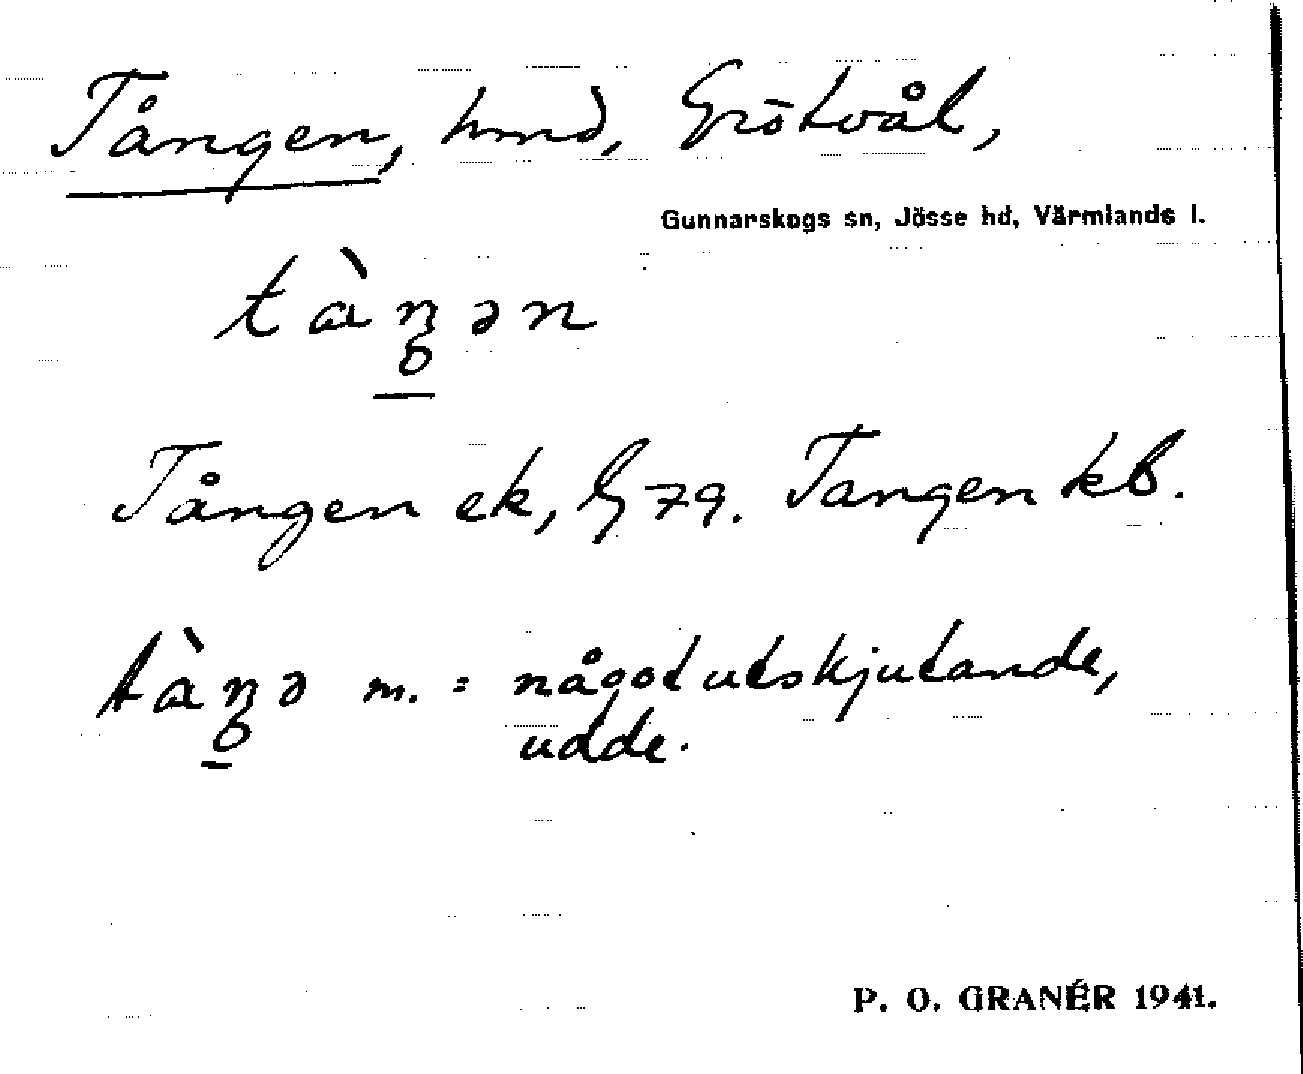 Tången, hmd, Grötvål,
Gunnarskogs sn, Jösse hd, Värmlands l.
tàŋən
Tången ek, G 79. Tangen kb.
tàŋə m. = något utskjutande,
udde.
P. O. GRANÉR 1941.